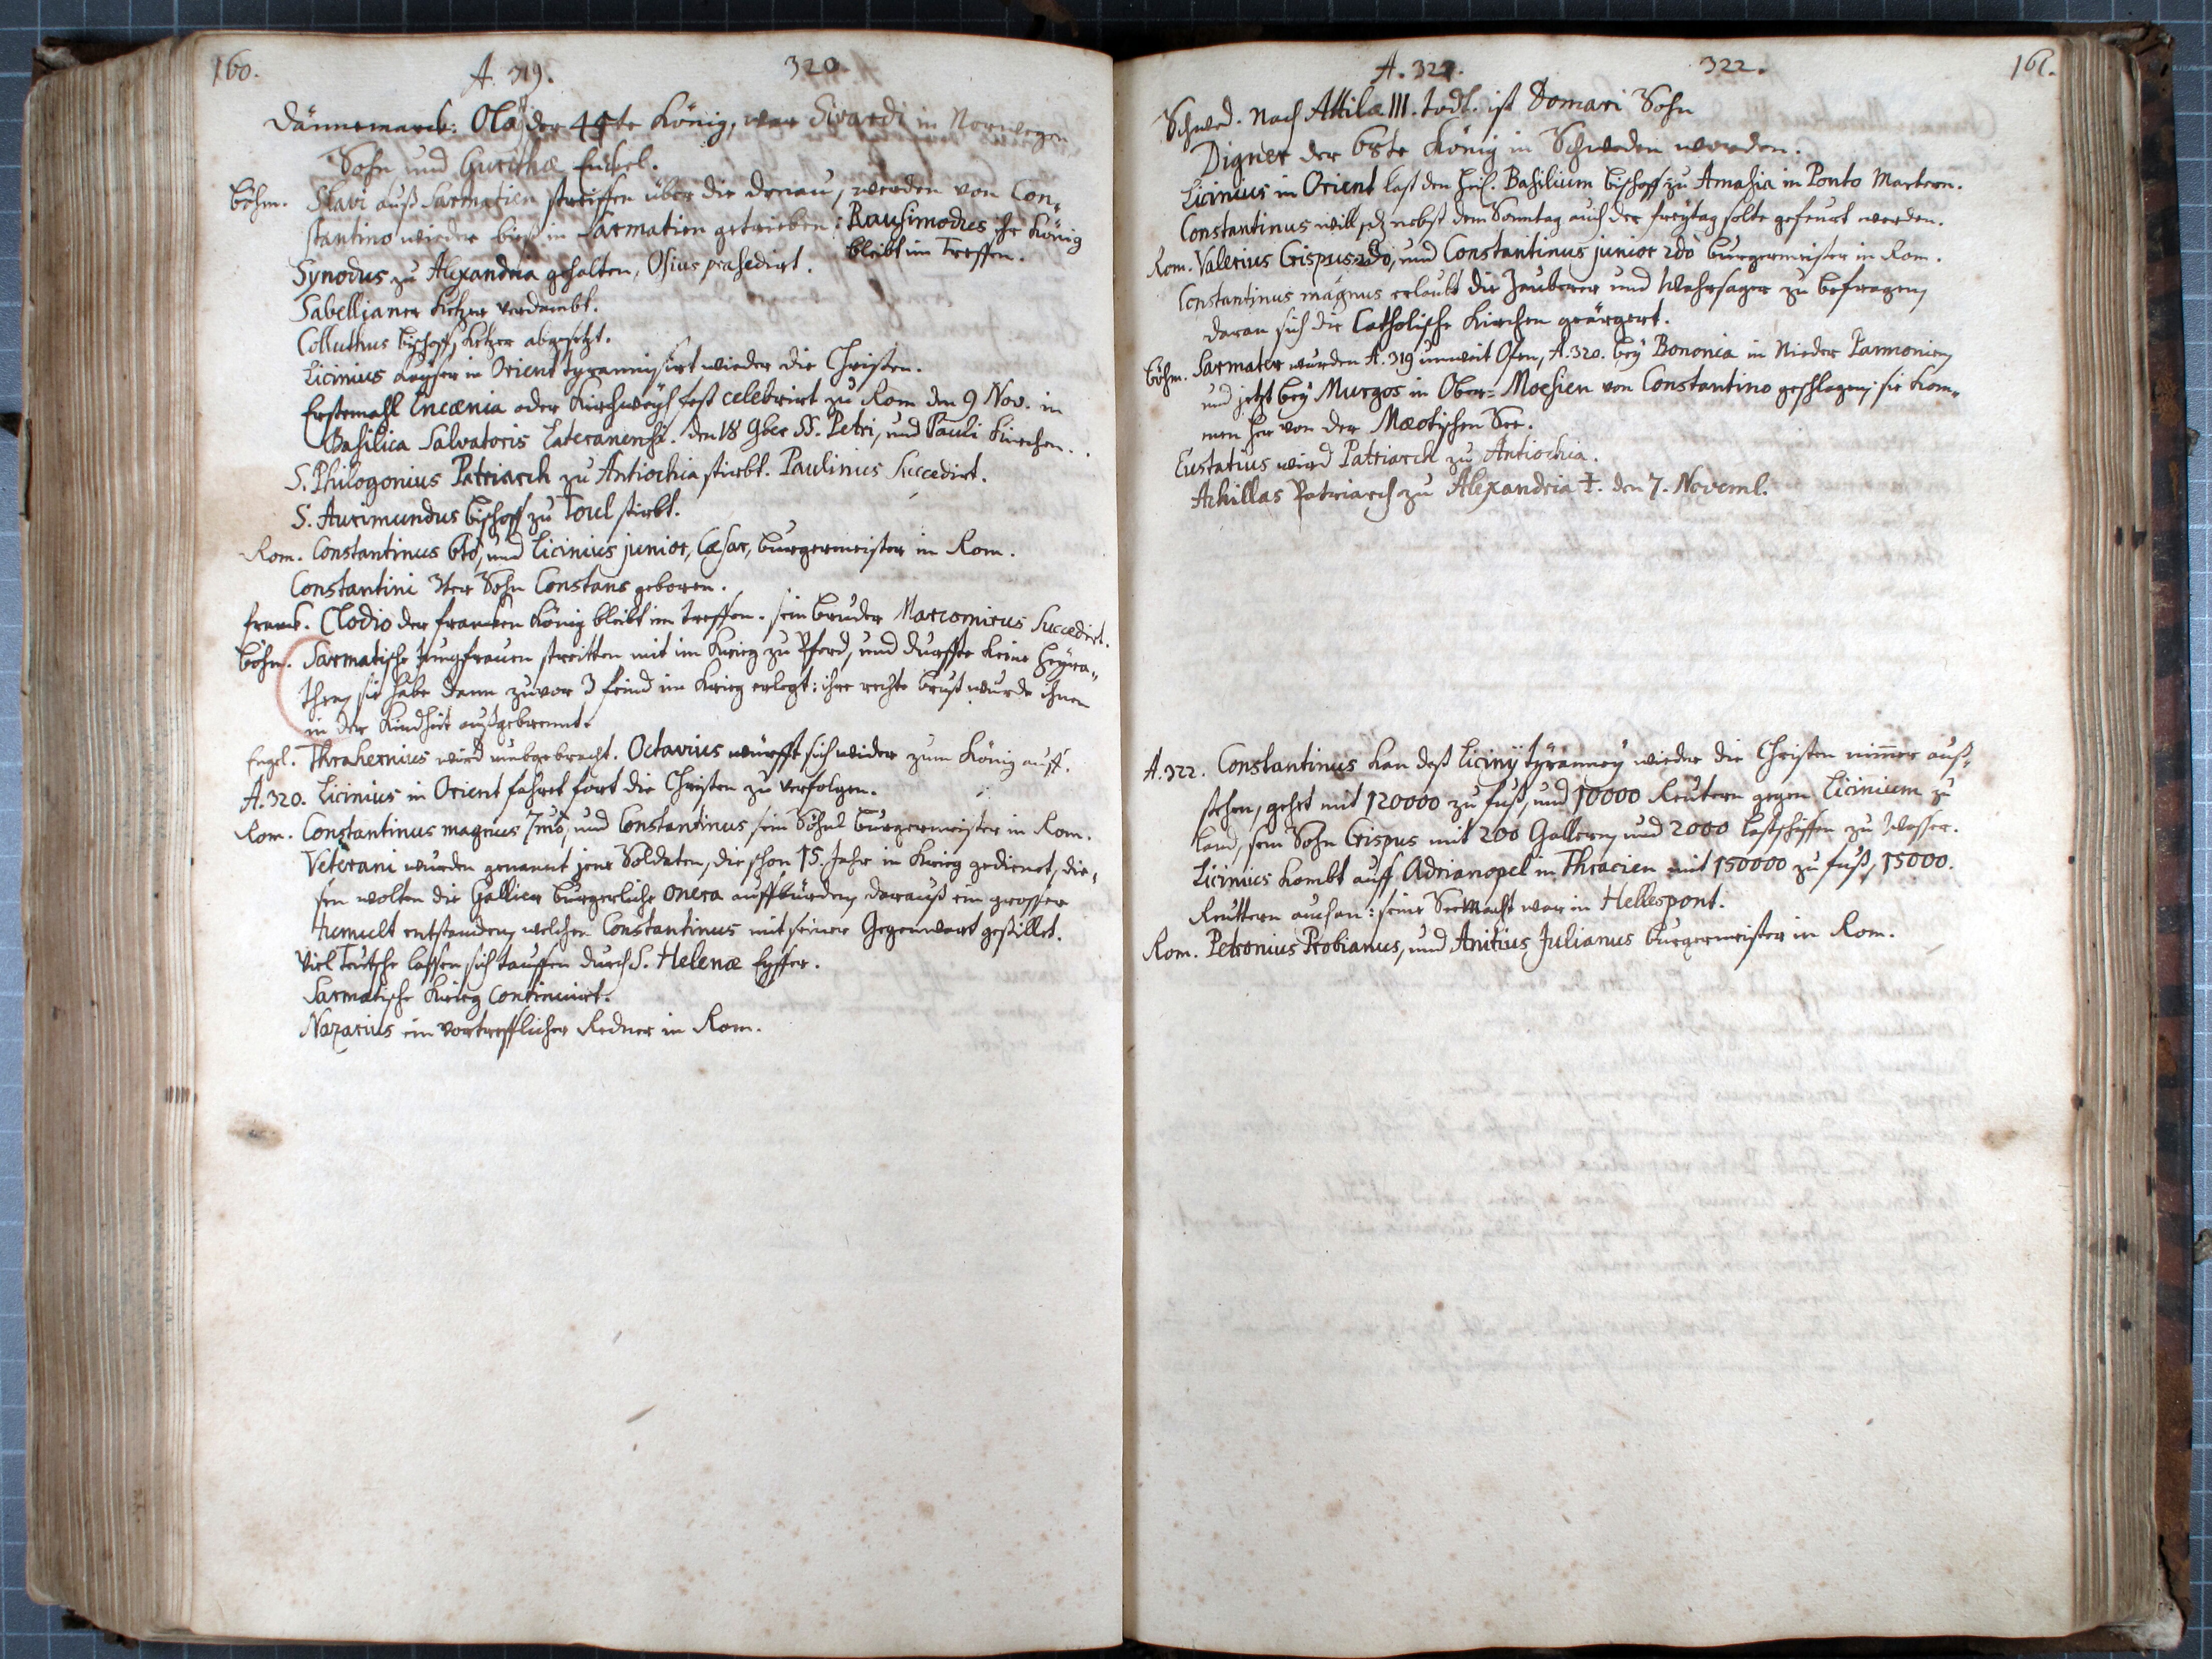 160.
A. 319. 320.
Dännemarck: Olä der 45te König, war Sivardi in Norwegen
Sohn und Gurithæ Enckel.
Böhm. Slavi auß Sarmatien streiffen über die Donau, werden von Con,
stantino wieder biß in Sarmatien getrieben: Rausimodus ihr König
bleibt im Treffen.
Synodus zu Alexandria gehalten, Osius præsedirt.
Sabellianer Ketzer verdambt.
Colluthus Bischoff, Ketzer abgesetzt.
Licinius Kayser in Orient tyrannisirt wieder die Christen.
Erstemahl Encænia oder Kirchweyh fest celebrirt zu Rom den 9 Nov. in
Basilica Salvatoris Lateranensi. den 18 9ber SS. Petri, und Pauli Kirchen.
S. Philogonius Patriarch zu Antiochia stirbt. Paulinus Succedirt.
S. Aurimundus Bischoff zu Toul stirbt.
Rom. Constantinus 6tò, und Licinius junior, Cæsar, Burgermeister in Rom.
Constantini 3ter Sohn Constans geboren.
Franck. Clodio der francken König bleibt im treffen. sein Bruder Marcomirus Succedirt.
Böhm. Sarmatische Jungfrauen streitten mit im Krieg zu Pferd, und durffte keine heyra„
then, sie habe dann zuvor 3 feind im Krieg erlegt: ihre rechte brust wurde ihnen
in der Kindheit außgebrennt.
Engel. Thrahernius wird umbgebracht. Octavius würfft sich wider zum König auff.
A. 320. Licinius in Orient fahret fort die Christen zu verfolgen.
Rom. Constantinus magnus 7mò, und Constantinus sein Söhnl Burgermeister in Rom.
Veterani wurden genannt jene Soldaten, die schon 15. Jahr in Krieg gedienet, die,
sen wolten die Gallier burgerliche onera auffbürden, darauß ein grosser
tumult entstanden, welchen Constantinus mit seiner Gegenwart gestillet.
Viel Teutsche lassen sich tauffen durch S. Helenæ Eyffer.
Sarmatische Krieg continuirt.
Nazarius ein vortrefflicher Redner in Rom.
161.
A. 321. 322.
Schwed. Nach Attilæ III. todt. ist Domari Sohn
Digner der 68te König in Schweden worden.
Licinius in Orient last den heil. Basilium Bischoff zu Amasia in Ponto Martern.
Constantinus will, dz nebst dem Sonntag auch der freytag solte gefeurt werden.
Rom. Valerius Crispus 2dò, und Constantinus junior 2dò Burgermeister in Rom.
Constantinus magnus erlaubt die Zauberer und Wahrsager zu befragen,
daran sich die Catholische Kirchen geärgert.
Böhm. Sarmater wurden A. 319 unweit Ofen, A. 320. bey Bononia in Nieder Pannonien,
und jetzt bey Murgos in Ober-Moesien von Constantino geschlagen; sie kom„
men her von der Mæotischen See.
Eustatius wird Patriarch zu Antiochia.
Achillas Patriarch zu Alexandria †. den 7. Noveml.
A. 322. Constantinus kan deß Licinÿ tÿranney wieder die Christen nimer auß,
stehen, gehet mit 120000 zu fuß, und 10000 Reutern gegen Licinium zu
Land, sein Sohn Crispus mit 200 Galleern, und 2000 Lastschiffen zu Wasser.
Licinius kombt auff Adrianopel in Thracien mit 150000 zu fuß, 15000.
Reuttern auch an: seine Seemacht war in Hellespont.
Rom. Petronius Probianus, und Anitius Julianus Burgermeister in Rom.